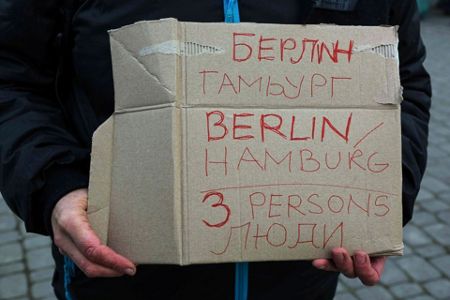 БЕРЛІН
ТАМЬУРГ
BERLIN/
HAMBURG
3 PERSONS
ЛЮДИ